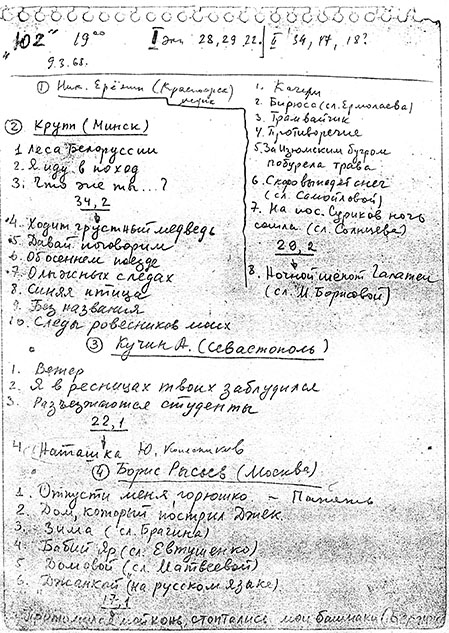 "102" 19⁰⁰ I эк. 28, 29, 22. II 34, 17, 18?
9.3.68.
① Ник. Ерёмин (Красноярск)
1. Качери
2. Бирюса (сл. Ермолаева)
3. Трамвайчик
4. Противоречие
5. За Изюмским бугром
побурела трава
6. снег
(сл. Самойловой)
7. На пос. Суриков ночь
сошла (сл. Солнцева)
20, 2
8. Ночной шёпот Галатеи
(сл. М. Борисовой)
② Крупп (Минск)
1 Леса Белоруссии
2. Я иду в поход
3. Что же ты...?
34, 2
4. Ходит грустный медведь
5. Давай поговорим
6. Об осеннем поезде
7. О лыжных следах
8. Синяя птица
9. Без названия
10. Следы ровесников моих
③ Кучин А. (Севастополь)
1. Ветер
2. Я в ресницах твоих заблудился
3. Разъезжаются студенты
22, 1
4 (Наташка Ю.
④ Борис Рысев (Москва)
1. Отпусти меня, горюшко - Память
2. Дом, который построил Джек
3. Зима (сл. Брагина)
4. Бабий Яр (сл. Евтушенко)
5 Домовой (сл. Матвеевой)
6. Джанкой (на русском языке)
17, 1
мой конь, стоптались мои башмаки